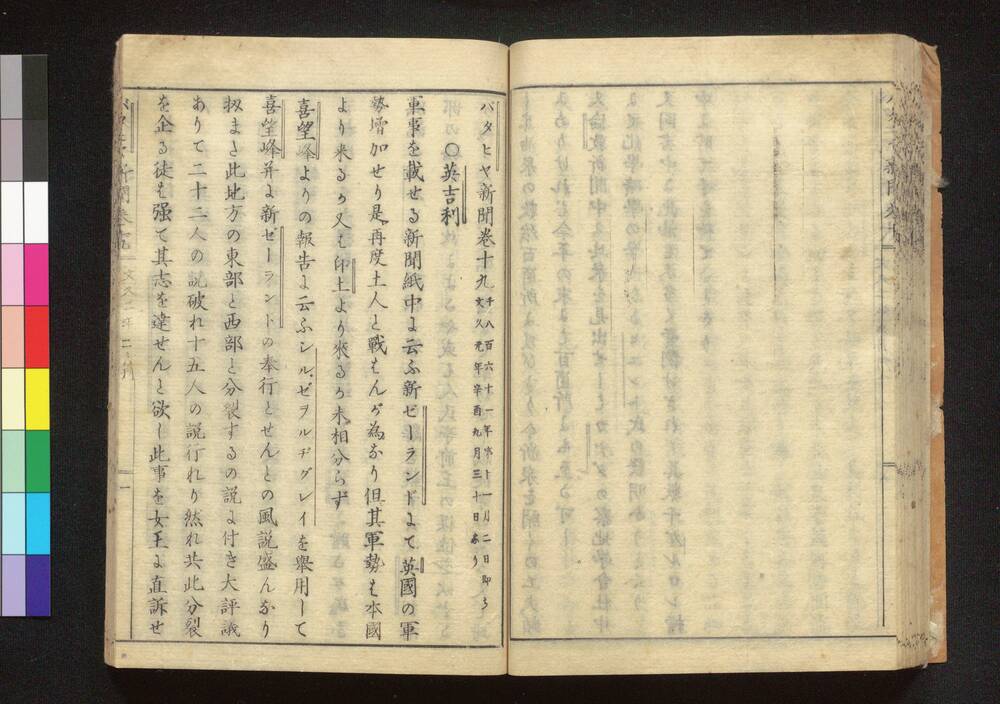 バタヒヤ新聞巻十九 千八百六十一年第十一月二日即ち
文久元年辛酉九月三十日なり
○英吉利
軍事を載せる新聞紙中に云ふ新ゼーランドにて英國の軍
勢増加せり是再度土人と戰はんが為なり但其軍勢も本國
より来るか又も印土より來るか未相分らず
喜望峰よりの報告に云ふシル、ゼヲルヂグレイを舉用して
喜望峰并に新ゼーラントの奉行とせんとの風説盛んなり
扨また此地方の東部と西部と分裂するの説に付き大評議
ありて二十三人の説破れ十五人の説行れり然れ共此分裂
を企る徒も强て其志を達せんと欲し此事を女王に直訴せ